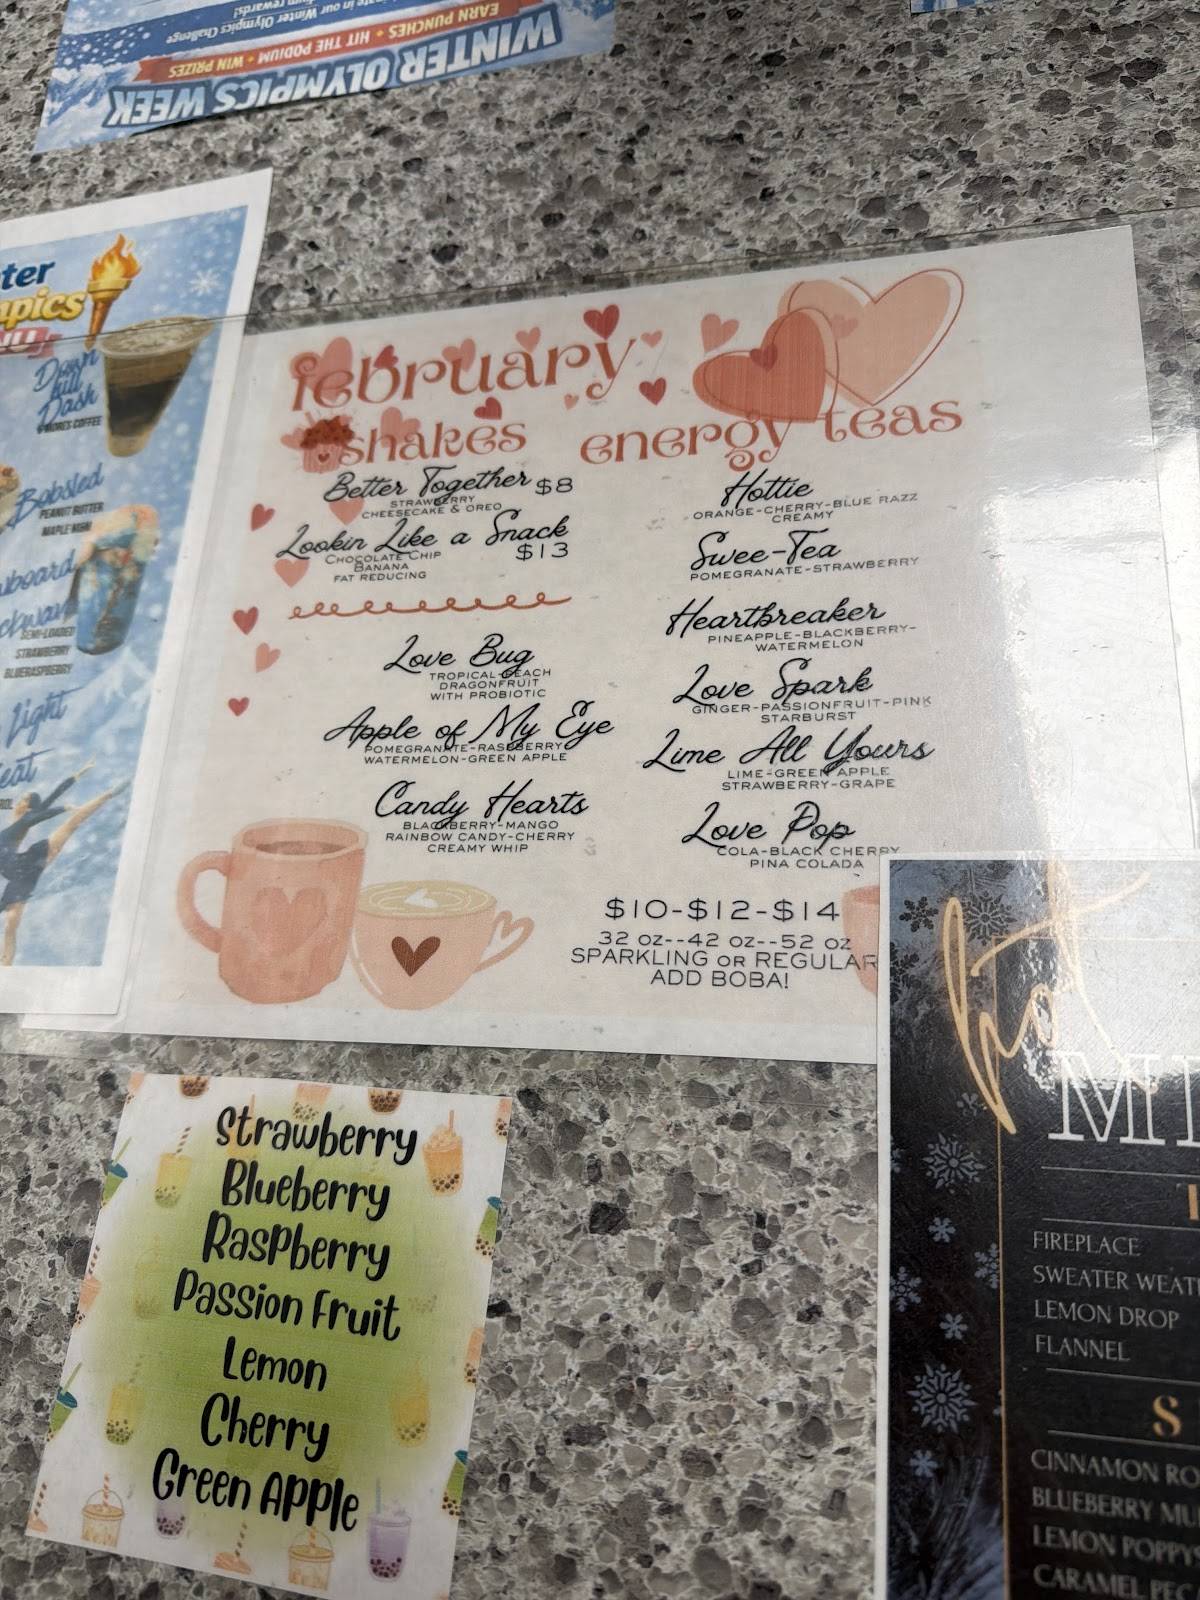 WINTER OLYMPICS WEEK
EARN PUNCHES • HIT THE PODIUM • WIN PRIZES
in our Winter Olympics Challenge
rewards!
Down
hill
Dash
S'MORES COFFEE
Bobsled
PEANUT BUTTER
MAPLE
SEMI-LOADED
STRAWBERRY
BLUERASPBERRY
Light
february
shakes
Better Together $8
STRAWBERRY
CHEESECAKE & OREO
Lookin Like a Snack
$13
CHOCOLATE CHIP
BANANA
FAT REDUCING
Love Bug
TROPICAL-PEACH
DRAGONFRUIT
WITH PROBIOTIC
Apple of My Eye
POMEGRANATE-RASBBERRY
WATERMELON-GREEN APPLE
Candy Hearts
BLACKBERRY-MANGO
RAINBOW CANDY-CHERRY
CREAMY WHIP
energy teas
Hottie
ORANGE-CHERRY-BLUE RAZZ
CREAMY
Swee-Tea
POMEGRANATE-STRAWBERRY
Heartbreaker
PINEAPPLE-BLACKBERRY-
WATERMELON
Love Spark
GINGER-PASSIONFRUIT-PINK
STARBURST
Lime All Yours
LIME-GREEN APPLE
STRAWBERRY-GRAPE
Love Pop
COLA-BLACK CHERRY
PINA COLADA
$10-$12-$14
32 oz--42 oz--52 oz
SPARKLING or REGULAR
ADD BOBA!
Strawberry
Blueberry
Raspberry
Passion Fruit
Lemon
Cherry
Green Apple
hot
FIREPLACE
SWEATER
LEMON DROP
FLANNEL
CINNAMON
BLUEBERRY
LEMON
CARAMEL